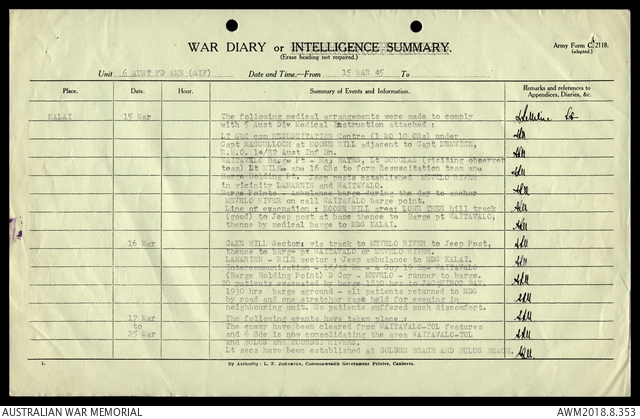 WAR DIARY or INTELLIGENCE SUMMARY.
(Erase heading not required.)
Army Form C. 2118.
(adapted.)
Unit 6 AUST FD AMB (AIF) Date and Time.—From 15 MAR 45 To
Place. Date. Hour. Summary of Events and Information. Remarks and references to Appendices, Diaries, &c.
KALAI 15 Mar The following medical arrangements were made to comply
with 5 Aust Div Medical Instruction attached :
LT SEC cum RESUSCITATION Centre (1 MO 10 ORs) under
Capt MACCULLOCH at MOOSE HILL adjacent to Capt
R.M.O. 14/32 Aust Inf Bn.
WAITAVALO Barge Pt - Maj HAYES, Lt DOUGLAS (visiting observer
team) Lt and 16 ORs to form Resuscitation team and
Barge Holding Pt. Jeep posts established MEVELO RIVER
in vicinity LAMAREIN and WAITAVALO.
Barge Points - Ambulance barge during the day to anchor
MEVELO RIVER on call WAITAVALO barge point.
Line of evacuation : MOOSE HILL area: LONE TREE hill track
(good) to Jeep post at base thence to Barge pt WAITAVALO,
thence by medical barge to MDS KALAI.
16 Mar CAKE HILL Sector: via track to MEVELO RIVER to Jeep Post,
thence to barge pt WAITAVALO or MEVELO RIVER.
LAMARIEN - RILE sector : Jeep ambulance to MDS KALAI.
Intercommunication - 14/32 Bn - 19 Bn- WAITAVALO
(Barge Holding Point) D Coy - MEVELO - runner to barge.
20 patients evacuated by barge 1830 hrs to JACQUINOT BAY.
1930 hrs barge aground - all patients returned to MDS
by road and one stretcher case held for evening in
neighbouring unit. No patients suffered much discomfort.
17 Mar The following events have taken place :
to The enemy have been cleared from WAITAVALO-TOL features
25 Mar and 6 Bde is now consolidating the area WAITAVALO-TOL
and BULUS and MOONDEI RIVERS.
Lt secs have been established at GOLDEN BEACH and BULUS BEACH.
1.
By Authority: L. F. Johnston, Commonwealth Government Printer, Canberra.
AUSTRALIAN WAR MEMORIAL
AWM2018.8.353